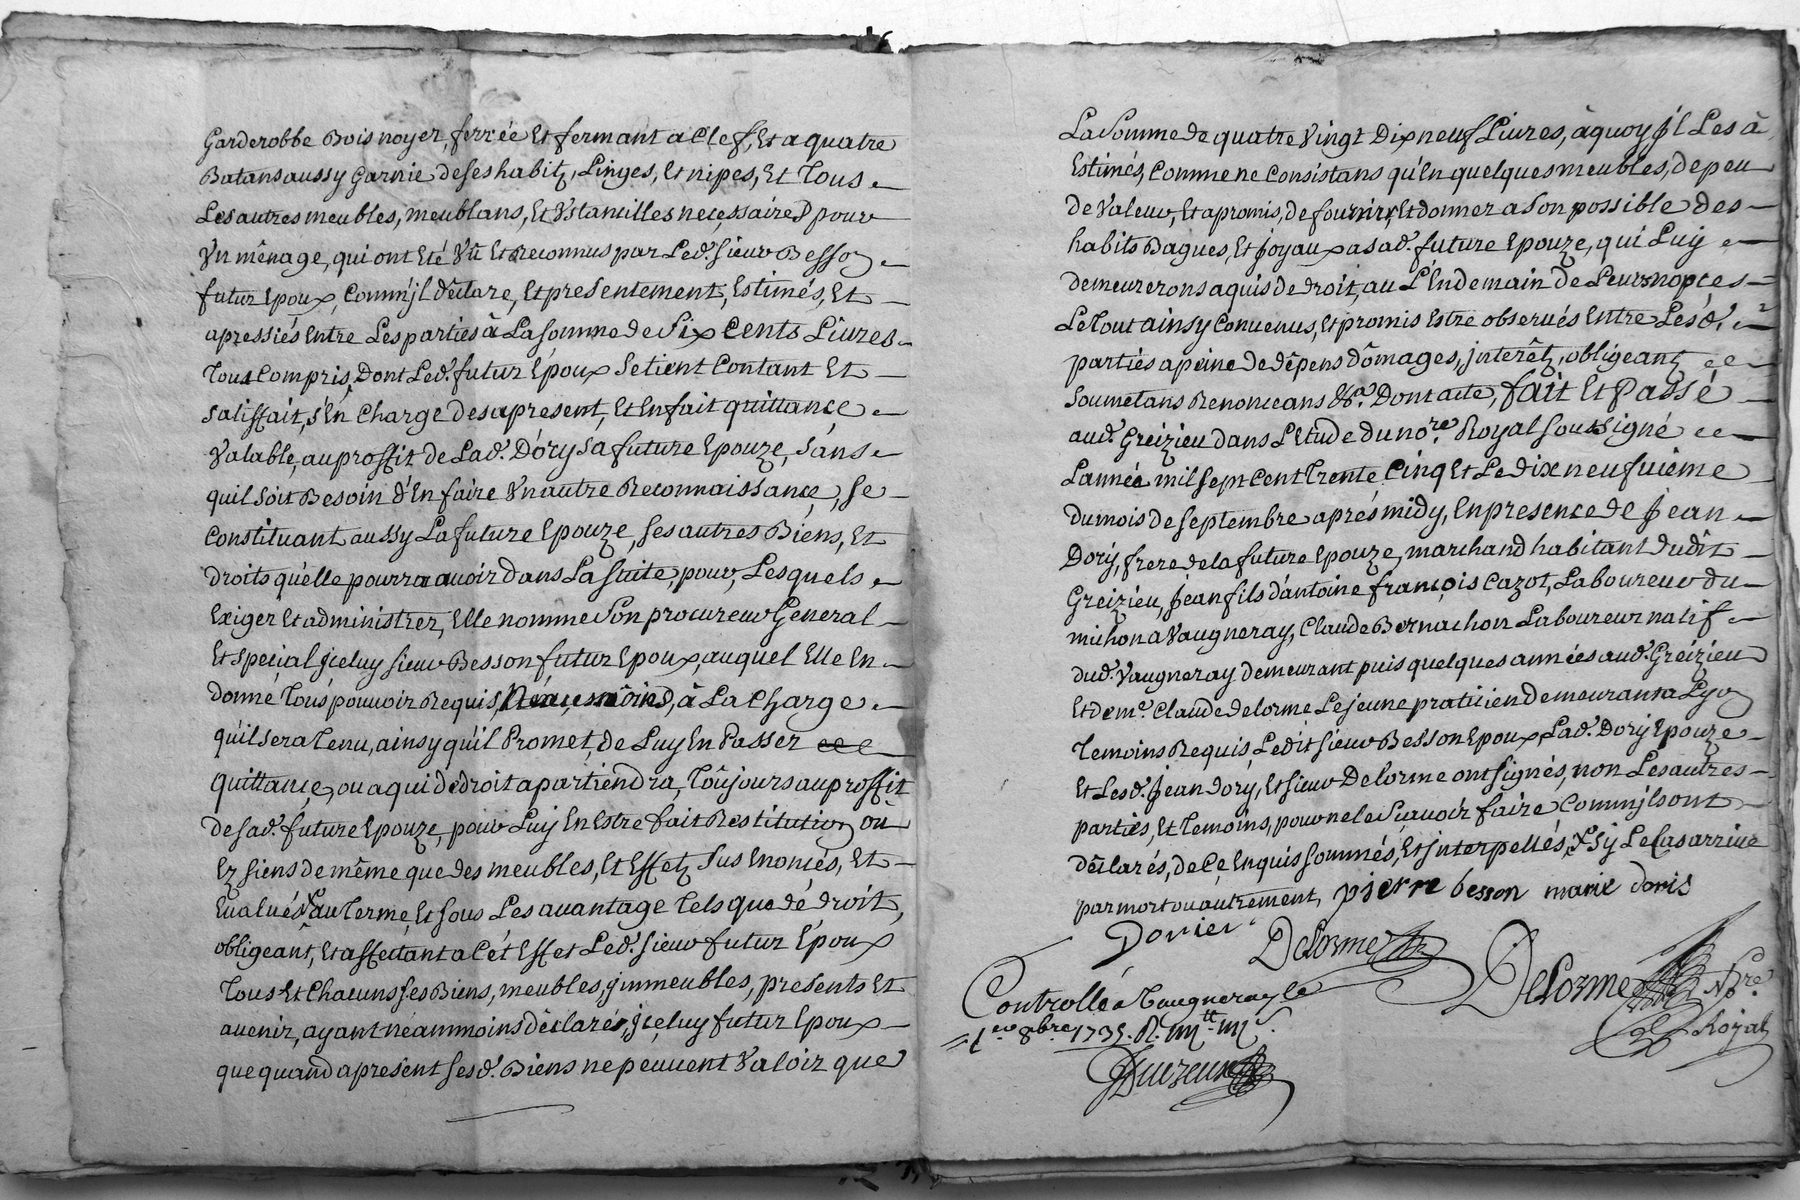 Garderobbe Bois noyer, ferrée Et fermant a Clef, Et a quatre
Batans aussy Garnie de ses habitz, Linges, Et nipes, Et Tous
Les autres meubles, meublans, Et Ustancilles necessaires pour
Un mênage, qui ont Eté Vû Et Reconnus par Led. sieur Besson
futur Epoux, Comm'jl déclare, Et presentement, Estimés, Et
apressiés Entre Les parties à La somme de Six Cents Livres
Tous Compris, Dont Led. futur Epoux se tient Contant Et
satisfait, s'En Charge des apresent, Et En fait quittance
Valable, au proffit de Lad. Dory sa future Epouze, sans
quil soit Besoin d'En faire Un autre Reconnaissance, se
Constituant aussy La future Epouze, ses autres Biens, Et
droits qu'elle pourra avoir dans La suite, pour, Lesquels
Exiger Et administrer, Elle nomme Son procureur General
Et special jceluy sieur Besson futur Epoux, auquel Elle En
donne Tous pouvoir Requis, Néaumoins, à La Charge
qu'il sera Tenu, ainsy qu'il Promet, de Luy En Passer
quittance, ou a qui de droit apartiendra, Toûjours au proffit
de sad. future Epouze, pour Luy En Estre fait Restitution ou
Ez siens de même que des meubles, Et Effetz sus Enoncés, Et
Evalués, au Terme, Et sous Les avantage Tels que de droit,
obligeant, Et affectant a Cét Effet Led. sieur futur Epoux
Tous Et Chacuns ses Biens, meubles, jmmeubles, presents Et
avenir, ayant néammoins déclaré, jceluy futur Epoux
que quand apresent sesd. Biens ne peuvent Valoir que
La Somme de quatre Vingt Dix neuf Livres, à quoy jl Les à
Estimés, Comme ne Consistans qu'En quelques meubles, de peu
de Valeur, Et a promis, de fournir, Et donner a Son possible des
habits Bagues, Et joyaux a sad. future Epouze, qui Luy
demeurerons aquis de droit, au L'Endemain de Leurs nopces
Le Tout ainsy Convenus, Et promis Estre observés Entre Lesd.
parties a peine de dépens dômages, jnterêtz, obligeant
soumetans Renonceans &a. Dont acte, fait Et Passé
aud. Greizieu dans L'Etude du nore. Royal soussigné
L'année mil sept Cent Trente Cinq Et Le dix neufvième
du mois de septembre aprés midy, En presence de Jean
Dory, frere de la future Epouze, marchand habitant dudit
Greizieu, Jean fils d'antoine françois Cazot, Laboureur du
michon a Vaugneray, Claude Bernachon Laboureur natif
dud. Vaugneray demeurant puis quelques années aud. Greizieu
Et de me. Claude delorme Le jeune praticien demeurant a Lyon
Temoins Requis Ledit sieur Besson Epoux, Lad. Dory Epouze
Et Lesd. Jean dory, Et sieur Delorme ont signés, non Les autres
parties, Et Temoins, pour ne le sçavoir faire Comm'jls ont
déclarés, de Ce Enquis sommés, Et jnterpellés, sy Le Cas arrive
par mort ou autrement, pierre besson marie doris
Dorier Delorme
Delorme Nre. Royal
Controllé a Vaugneray le
1er 8bre. 1735. R.